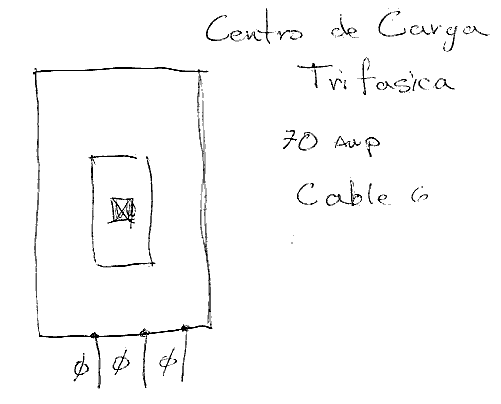 Centro de Carga
Trifasica
70 Amp
Cable 6
φ φ φ